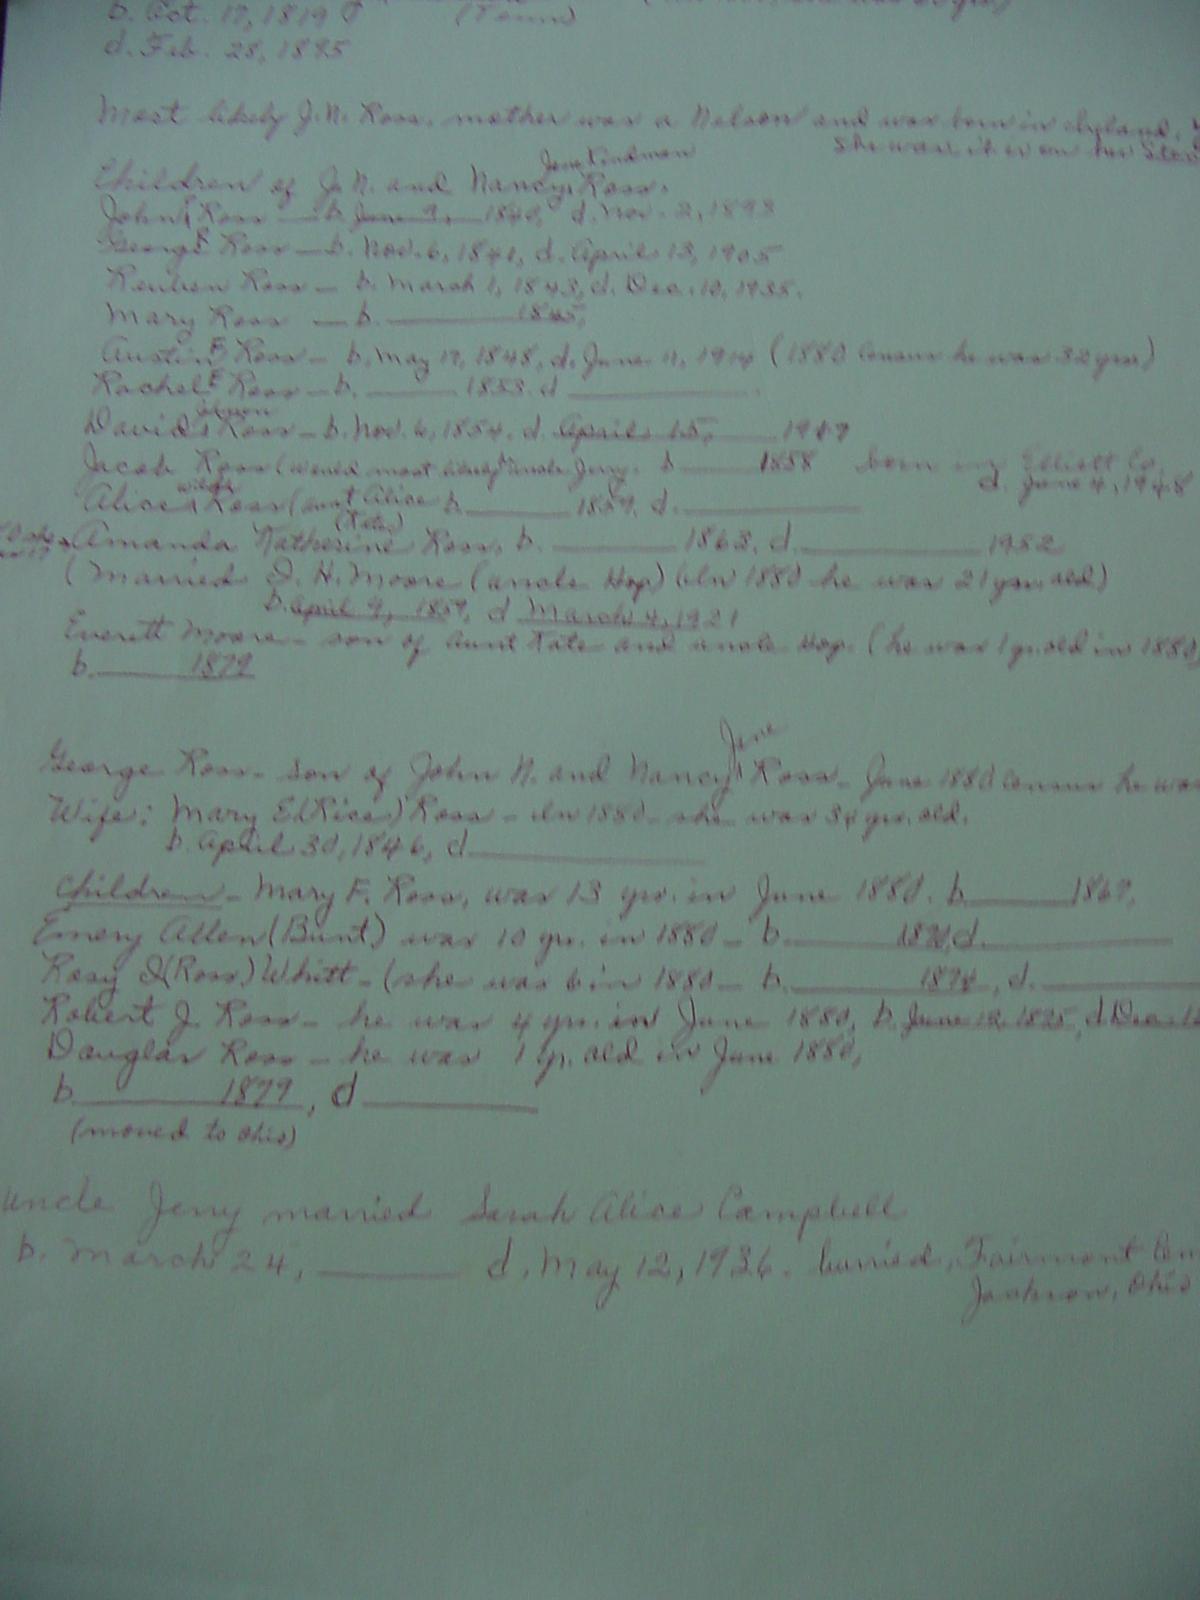 b. Oct. 17, 1819 (Tenn)
d. Feb. 28, 1895
Most likely J.N. Ross. mother was a Nelson and was born in
she was
Jane
Children of J.N. and Nancy Ross.
John Ross — b. June 9, 1840, d. Nov. 2, 1898
George F Ross — b. Nov. 6, 1841, d. April 13, 1905
Reuben Ross — b. March 1, 1843, d. Dec. 10, 1935.
Mary Ross — b. ______ 1845,
Austin B Ross — b. May 17, 1848, d. June 11, 1914 (1880 Census he was 32 yrs)
Rachel E Ross — b. ______ 1853. d ______
David Ross — b. Nov. 6, 1854. d. April 15, ______
Jacob Ross (would most likely uncle Jerry. b ______ 1858 born in Elliott Co.
d. June 4, 1948
Alice Ross (aunt Alice b. ______ 1859, d. ______
(Kate)
Amanda Katherine Ross, b. ______ 1863, d. ______ 1952
(Married I. H. Moore (uncle Hop) (In 1880 he was 21 yrs. old)
b. April 9, 1859, d March 4, 1921
Everett Moore — son of Aunt Kate and uncle Hop. (he was 1 yr. old in 1880)
b. ______ 1879
Jane
George Ross — Son of John N. and Nancy Ross — June 1880 census he was
Wife: Mary E. (Rice) Ross — In 1880 — she was 34 yrs. old.
b. April 30, 1846, d ______
Children — Mary F. Ross, was 13 yrs. in June 1880. b. ______ 1867,
Emery Allen (Bunt) was 10 yr. in 1880 — b. ______ 1870, d. ______
Rosy I (Ross) Whitt — (she was 6 in 1880 — b. ______ 1874, d. ______
Robert J. Ross — he was 4 yrs. in June 1880, b. June 12, 1875, d Dec. 12
Douglas Ross — he was 1 yr. old in June 1880,
b. ______ 1879, d ______
(moved to Ohio)
Uncle Jerry married Sarah Alice Campbell
b. March 24, ______ d. May 12, 1936. buried, Fairmont
Jackson, Ohio